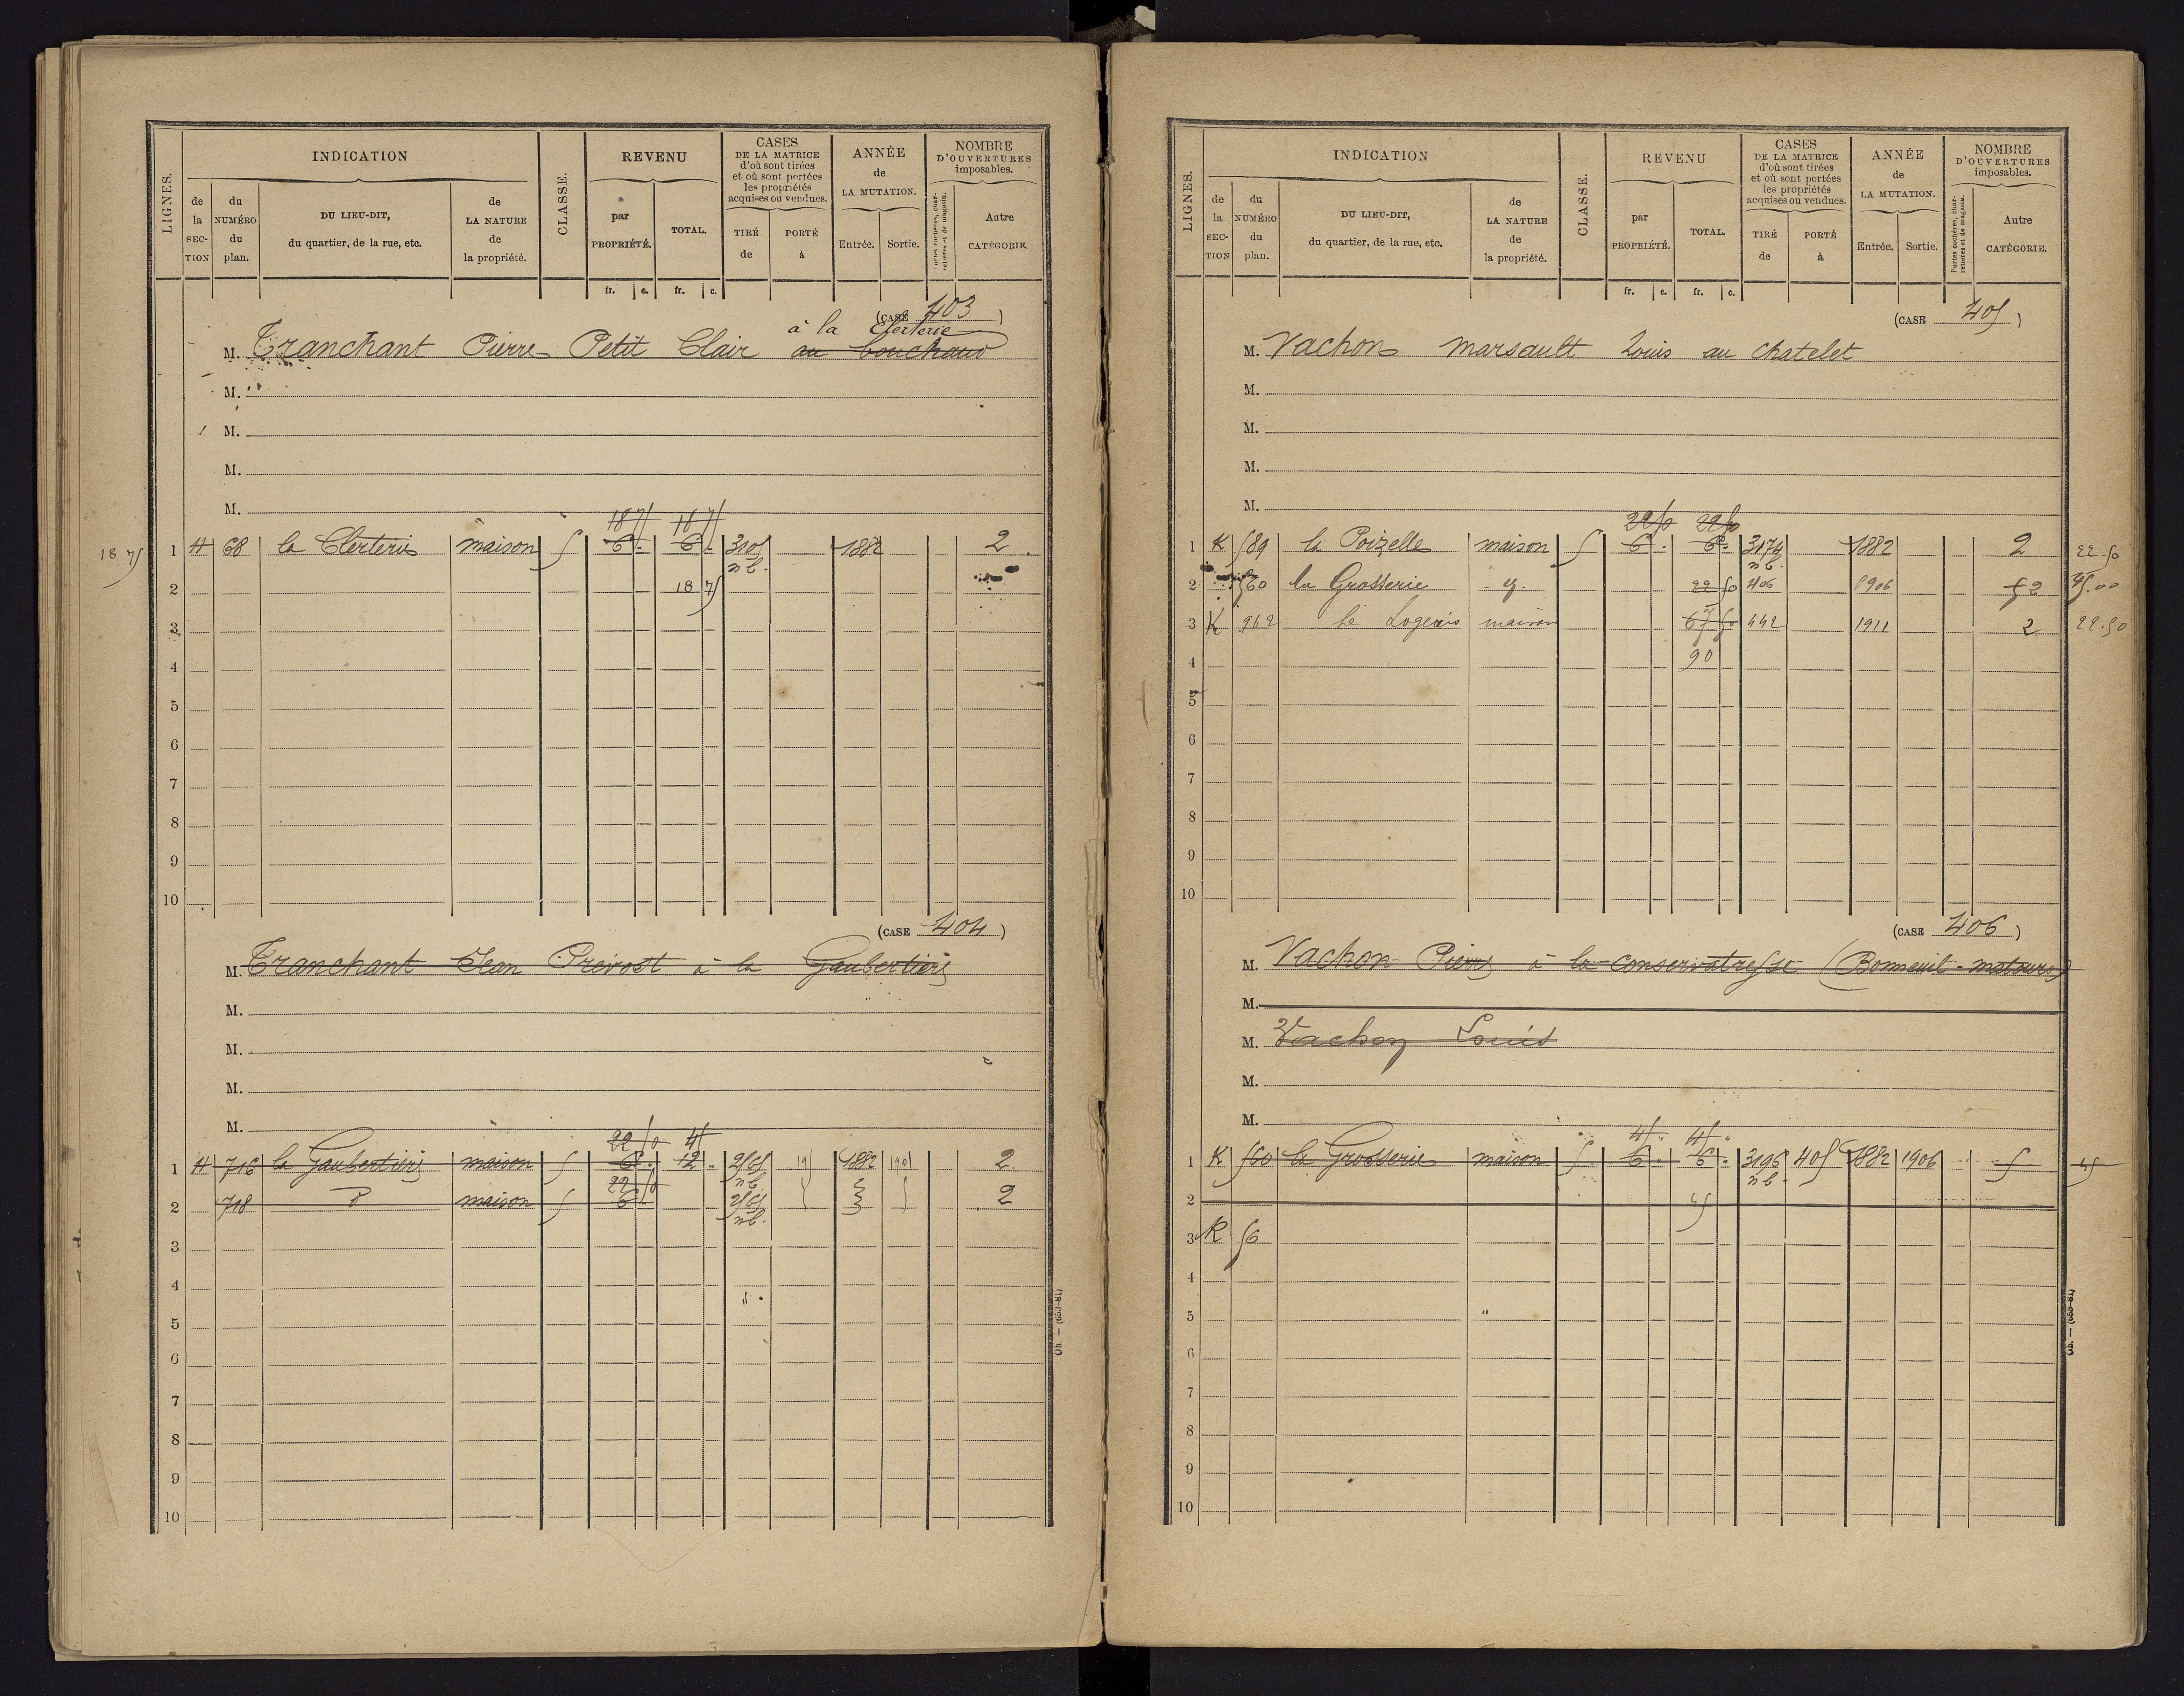 LIGNES.
INDICATION
de la SEC-TION
du NUMÉRO du plan.
DU LIEU-DIT, du quartier, de la rue, etc.
de LA NATURE de la propriété.
CLASSE.
REVENU
par PROPRIÉTÉ.
TOTAL.
CASES DE LA MATRICE d'où sont tirées et où sont portées les propriétés acquises ou vendues.
TIRÉ de
PORTÉ à
ANNÉE de LA MUTATION.
Entrée. Sortie.
NOMBRE D'OUVERTURES imposables.
Portes cochères, charretières et de magasin.
Autre CATÉGORIE.
fr. c. fr. c.
(CASE 403)
à la Cleterie
M. Tranchant Pierre Petit Clair au bouchaud
M.
M.
M.
M.
18 75 18 75
18.75 1 H 68 la Cleterie maison 5 6 . 6 . 3105 1882 2
nb.
2 18 75
3
4
5
6
7
8
9
10
(CASE 404)
M. Tranchant Jean Prévost à la Gaubertière
M.
M.
M.
M.
22 50 45
1 H 716 la Gaubertière maison 5 6 . 12 . 2565 19 1882 1901 2
nb
22 50
2 718 d maison 5 6 2565 2
nb.
3
4
5
6
7
8
9
10
Ob. — (653-81)
LIGNES.
INDICATION
de la SEC-TION
du NUMÉRO du plan.
DU LIEU-DIT, du quartier, de la rue, etc.
de LA NATURE de la propriété.
CLASSE.
REVENU
par PROPRIÉTÉ.
TOTAL.
CASES DE LA MATRICE d'où sont tirées et où sont portées les propriétés acquises ou vendues.
TIRÉ de
PORTÉ à
ANNÉE de LA MUTATION.
Entrée. Sortie.
NOMBRE D'OUVERTURES imposables.
Portes cochères, charretières et de magasin.
Autre CATÉGORIE.
fr. c. fr. c.
(CASE 405)
M. Vachon marsault Louis au chatelet
M.
M.
M.
M.
22 50 22 50
1 K 589 la Poizelle maison 5 6 . 6 . 3174 1882 2 22.50
nb.
2 560 la Grosserie 22 50 406 1906 45.00
3 K 962 le Logerais maison 67 50 442 1911 2 22.50
4 90
5
6
7
8
9
10
(CASE 406)
M. Vachon Pierre à la conservatresse (Bonneuil-matours)
M.
M. Vachon Louis
M.
M.
45 " 45 "
1 K 560 la Grosserie maison 5 6 . 6 . 3196 405 1882 1906 5 45
nb.
2 45
3 K 56
4
5
6
7
8
9
10
Ob. — (653-81)